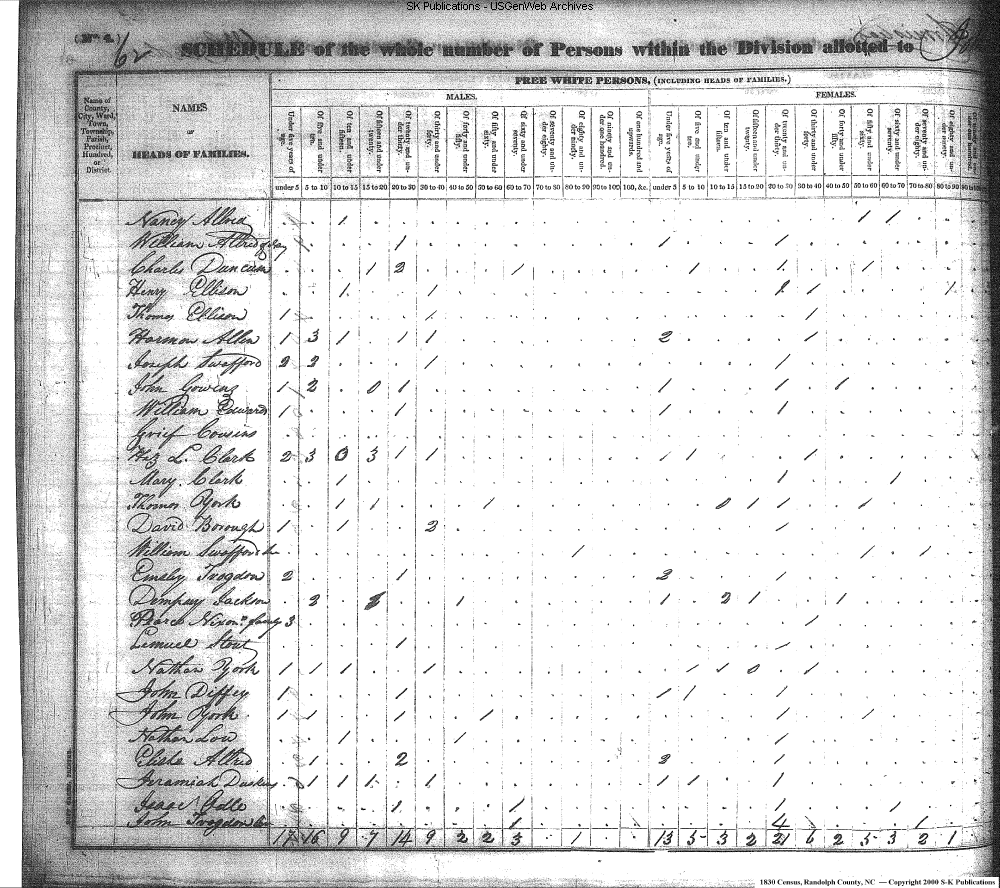 SK Publications - USGenWeb Archives
(No. 4.)
62
SCHEDULE of the whole number of Persons within the Division allotted to
FREE WHITE PERSONS, (INCLUDING HEADS OF FAMILIES.)
MALES. FEMALES.
Name of County, City, Ward, Town, Township, Parish, Precinct, Hundred, or District.
NAMES
OR
HEADS OF FAMILIES.
Under five years of age. Of five and under ten. Of ten and under fifteen. Of fifteen and under twenty. Of twenty and under thirty. Of thirty and under forty. Of forty and under fifty. Of fifty and under sixty. Of sixty and under seventy. Of seventy and under eighty. Of eighty and under ninety. Of ninety and under one hundred. Of one hundred and upwards. Under five years of age. Of five and under ten. Of ten and under fifteen. Of fifteen and under twenty. Of twenty and under thirty. Of thirty and under forty. Of forty and under fifty. Of fifty and under sixty. Of sixty and under seventy. Of seventy and under eighty. Of eighty and under ninety.
under 5 5 to 10 10 to 15 15 to 20 20 to 30 30 to 40 40 to 50 50 to 60 60 to 70 70 to 80 80 to 90 90 to 100 100, &c. under 5 5 to 10 10 to 15 15 to 20 20 to 30 30 to 40 40 to 50 50 to 60 60 to 70 70 to 80 80 to 90
Nancy Allred 1 1 1
William Allred 1 1 1
Charles Duncan 1 2 1 1 1 1
Henry Ellison 1 1 1 1 1
Thomas Ellison 1 1 1
Harmon Allen 1 3 1 1 1 2 1
Joseph Swafford 2 2 1 1
John Gowens 1 2 0 1 1 1 1
William Edwards 1 1 1 1
Grief Cousins
Hez L. Clark 2 3 0 3 1 1 1 1 1
Mary Clark 1 1 1
Thomas York 1 1 1 0 1 1 1
David Borough 1 1 2 1
William Swafford 1 1 1
Emsley Trogdon 2 1 2 1
Dempsey Jackson 2 1 1 2 1 1
Pearce Nixon family 3 1
Lemuel Stout 1 1
Nathan York 1 1 1 1 1 1 0 1
John Diffey 1 1 1 1 1
John York 1 1 1 1 1 1
Nathan Low 1 1 1
Elisha Allred 1 2 2 1
Jeramiah 1 1 1 1 1 1 1
Isaac Odle 1 1 1 1
John Trogdon 1 4 1
17 16 9 7 14 9 2 2 3 1 13 5 3 2 21 6 2 5 3 2 1
1830 Census, Randolph County, NC — Copyright 2000 S-K Publications